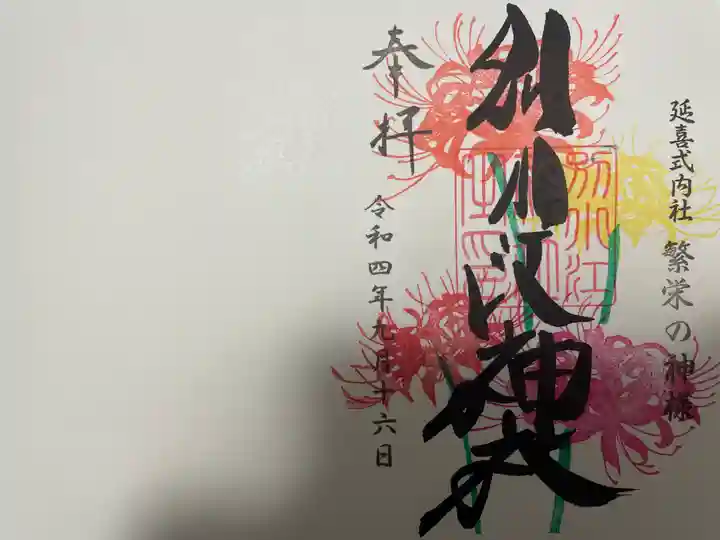 延喜式内社 繁栄の神様
別小江神社
奉拝
令和四年九月十六日